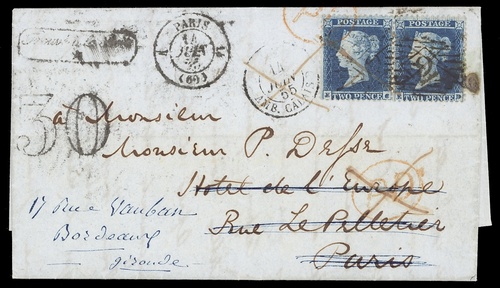 PARIS
14
JUIN
55
(60)
14
JUIN
55
AMB. CALAIS
POSTAGE POSTAGE
TWO PENCE TWO PENCE
30
A Monsieur
Monsieur P. Desse
Hotel de l'Europe
Rue Le Pelletier
Paris
17 Rue Vauban
Bordeaux
Gironde